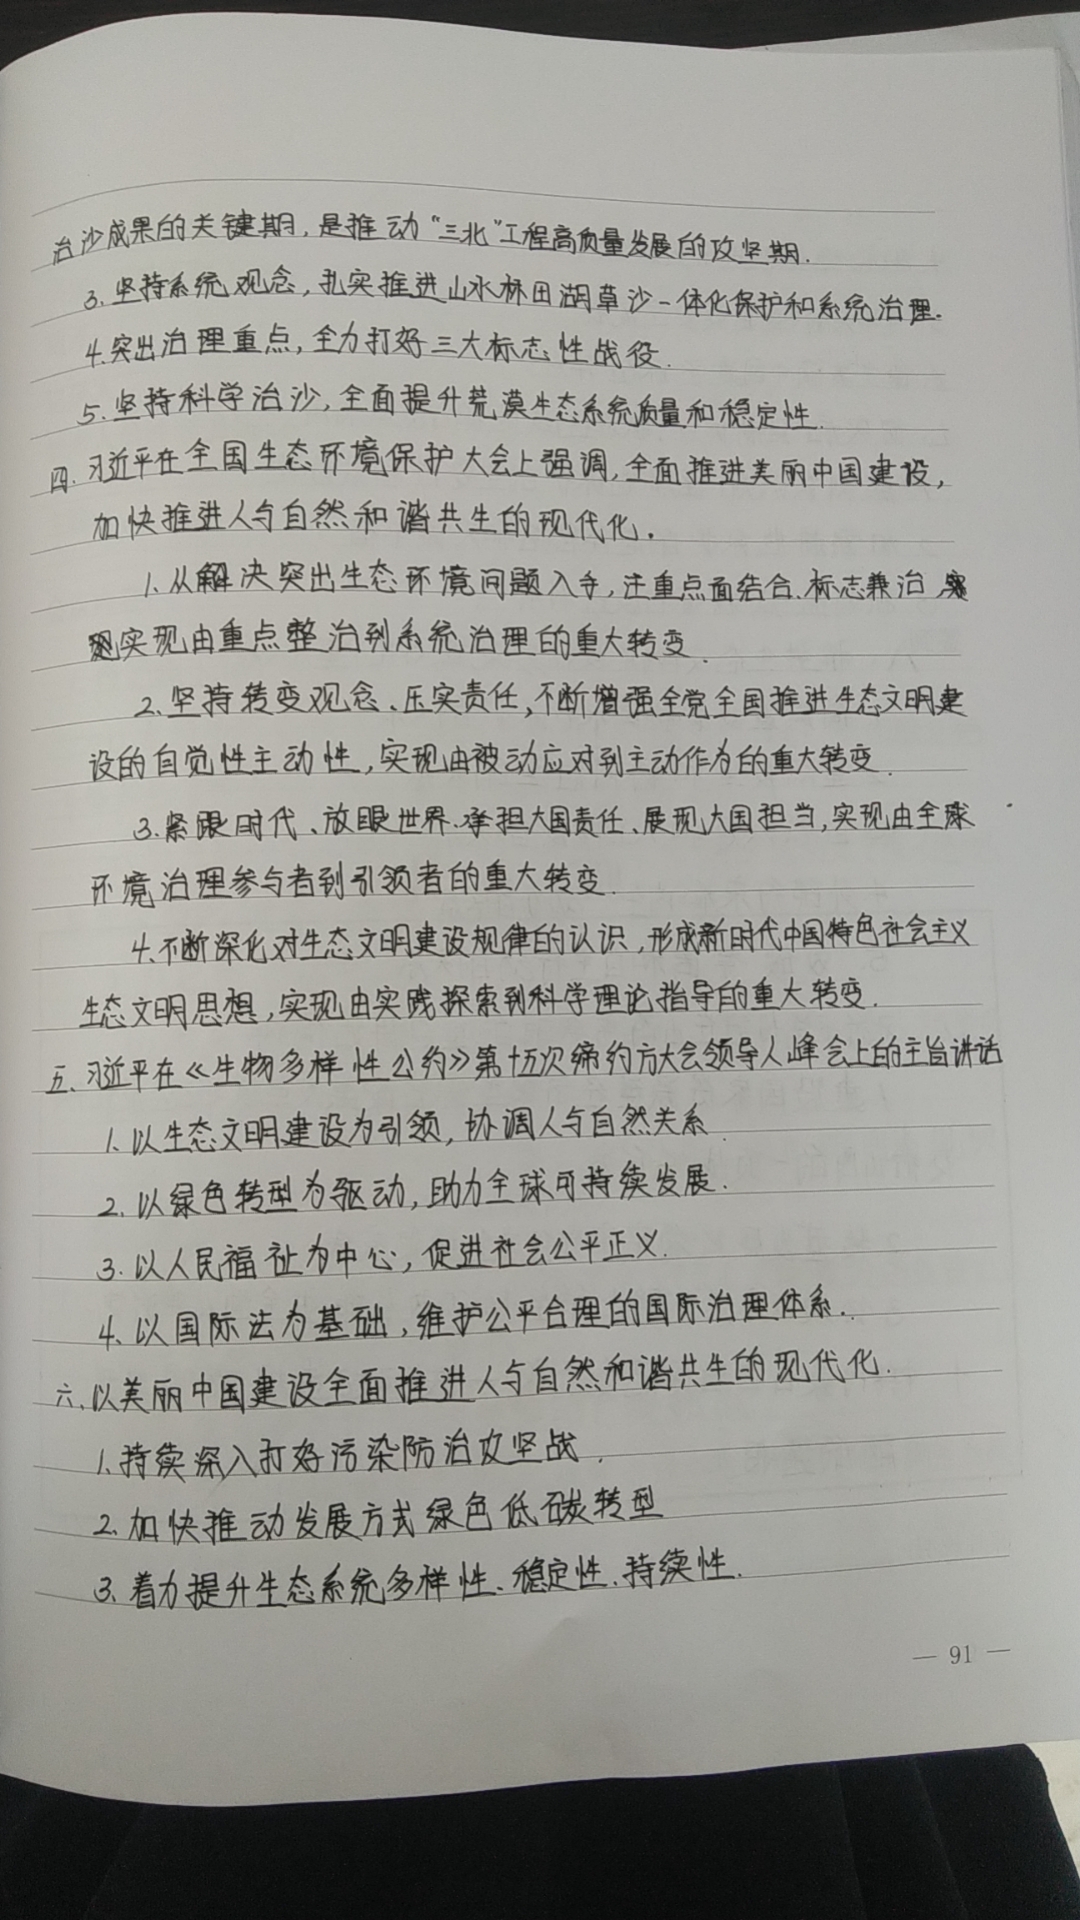 治沙成果的关键期，是推动“三北”工程高质量发展的攻坚期.
3. 坚持系统观念，扎实推进山水林田湖草沙一体化保护和系统治理.
4. 突出治理重点，全力打好三大标志性战役.
5. 坚持科学治沙，全面提升荒漠生态系统质量和稳定性.
四. 习近平在全国生态环境保护大会上强调，全面推进美丽中国建设，
加快推进人与自然和谐共生的现代化.
1. 从解决突出生态环境问题入手，注重点面结合、标志兼治，
实现由重点整治到系统治理的重大转变.
2. 坚持转变观念、压实责任，不断增强全党全国推进生态文明建
设的自觉性主动性，实现由被动应对到主动作为的重大转变.
3. 紧跟时代、放眼世界、承担大国责任、展现大国担当，实现由全球
环境治理参与者到引领者的重大转变.
4. 不断深化对生态文明建设规律的认识，形成新时代中国特色社会主义
生态文明思想，实现由实践探索到科学理论指导的重大转变.
五. 习近平在《生物多样性公约》第十五次缔约方大会领导人峰会上的主旨讲话
1. 以生态文明建设为引领，协调人与自然关系.
2. 以绿色转型为驱动，助力全球可持续发展.
3. 以人民福祉为中心，促进社会公平正义.
4. 以国际法为基础，维护公平合理的国际治理体系.
六. 以美丽中国建设全面推进人与自然和谐共生的现代化.
1. 持续深入打好污染防治攻坚战.
2. 加快推动发展方式绿色低碳转型
3. 着力提升生态系统多样性、稳定性、持续性.
— 91 —